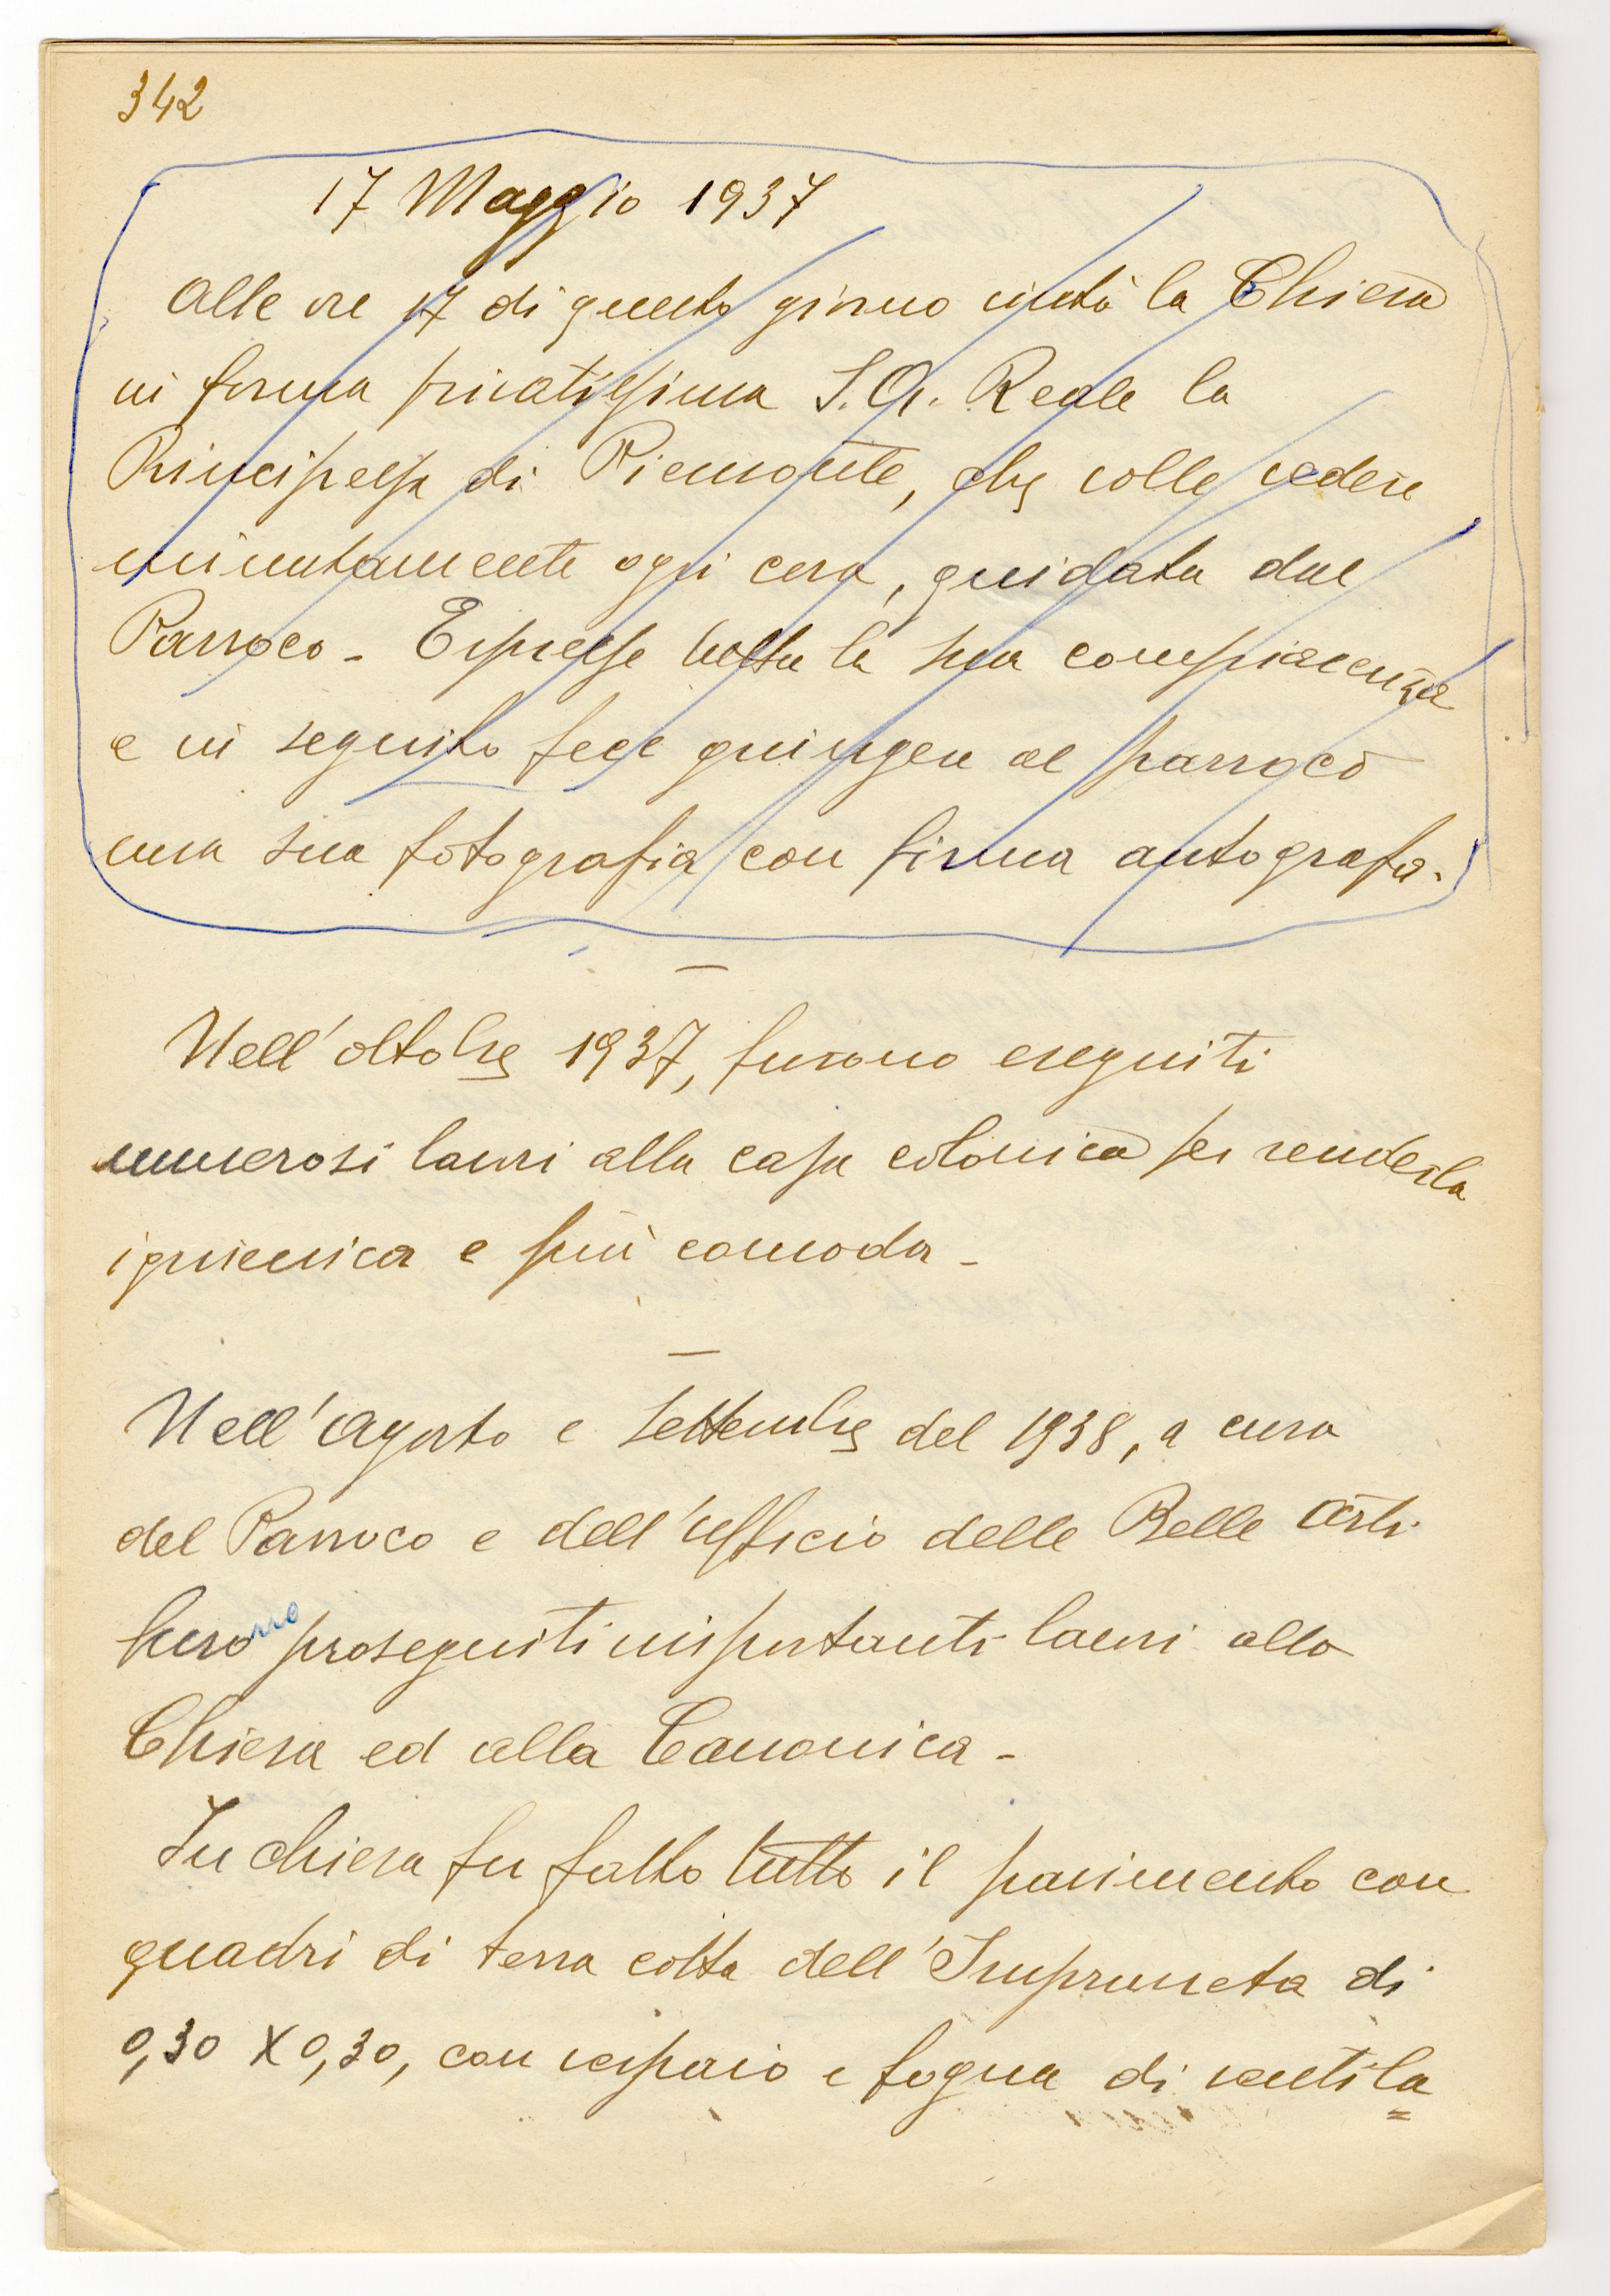 342
17 Maggio 1937
Alle ore 17 di questo giorno visitò la Chiesa
in forma privatissima S. A. Reale la
Principessa di Piemonte, che volle vedere
minutamente ogni cosa, guidata dal
Parroco - Espresse tutta la sua compiacenza
e in seguito fece giungere al parroco
una sua fotografia con firma autografa.
Nell'ottobre 1937, furono eseguiti
numerosi lavori alla casa colonica per renderla
igienica e più comoda -
Nell'Agosto e Settembre del 1938, a cura
del Parroco e dell'ufficio delle Belle Arti
furono proseguiti importanti lavori alla
Chiesa ed alla Canonica -
In chiesa fu fatto tutto il pavimento con
quadri di terra cotta dell'Impruneta di
0,30 X 0,30, con vespaio e fogna di ventila=